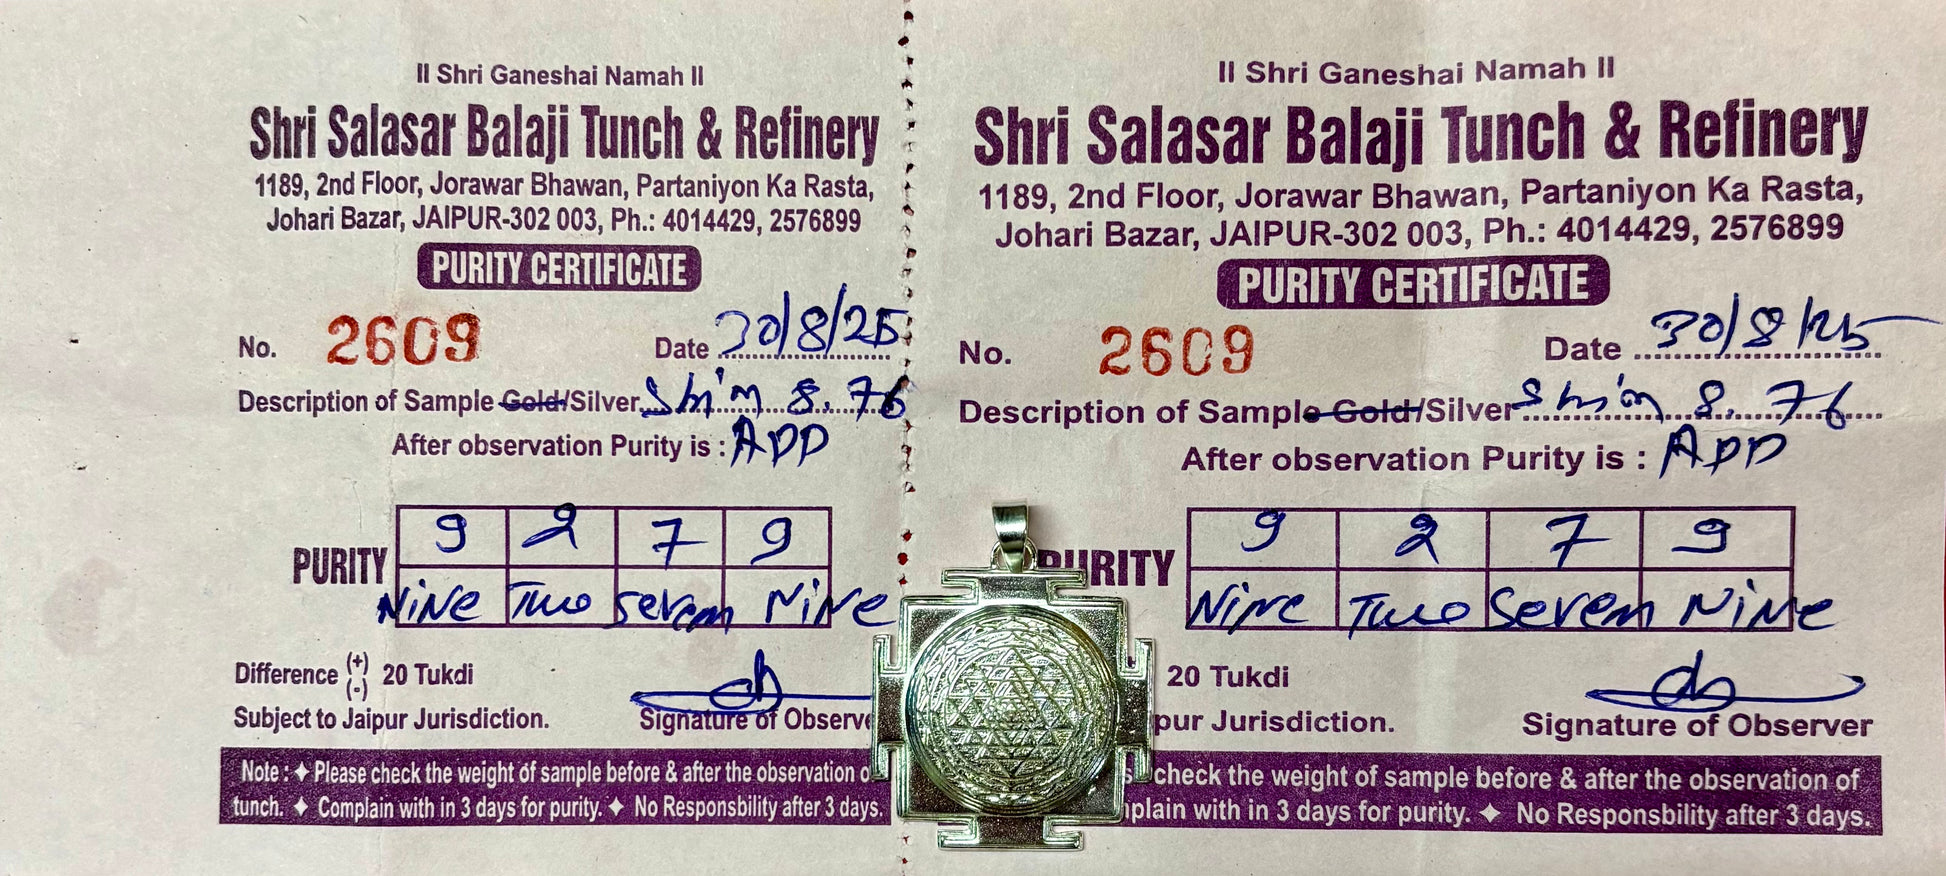 II Shri Ganeshai Namah II
Shri Salasar Balaji Tunch & Refinery
1189, 2nd Floor, Jorawar Bhawan, Partaniyon Ka Rasta,
Johari Bazar, JAIPUR-302 003, Ph.: 4014429, 2576899
PURITY CERTIFICATE
No. 2609 Date 30/8/25
Description of Sample Gold/Silver 8.76
After observation Purity is : APP
PURITY 9 2 7 9
NiNe Two Seven NiNe
Difference (+) (-) 20 Tukdi
Subject to Jaipur Jurisdiction. Signature of Observe
Note : ✦ Please check the weight of sample before & after the observation o
tunch. ✦ Complain with in 3 days for purity. ✦ No Responsbility after 3 days.
II Shri Ganeshai Namah II
Shri Salasar Balaji Tunch & Refinery
1189, 2nd Floor, Jorawar Bhawan, Partaniyon Ka Rasta,
Johari Bazar, JAIPUR-302 003, Ph.: 4014429, 2576899
PURITY CERTIFICATE
No. 2609 Date 30/8/25
Description of Sample Gold/Silver 8.76
After observation Purity is : APP
PURITY 9 2 7 9
NiNe Two Seven NiNe
20 Tukdi
pur Jurisdiction. Signature of Observer
check the weight of sample before & after the observation of
plain with in 3 days for purity. ✦ No Responsbility after 3 days.